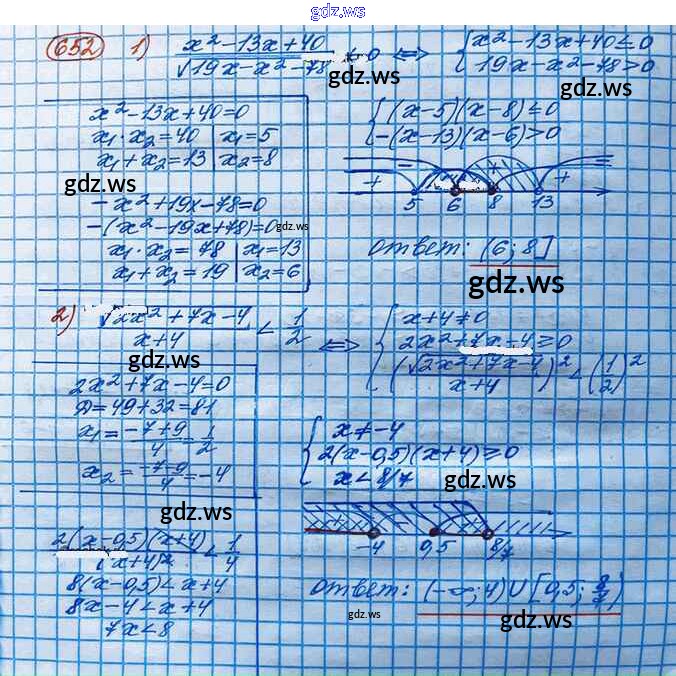 gdz.ws
652 1) x²-13x+40 / √19x-x²-78 ≤ 0 ⟺ { x²-13x+40≤0
19x-x²-78>0
gdz.ws
gdz.ws
x²-13x+40=0
x₁·x₂=40 | x₁=5
x₁+x₂=13 | x₂=8
{ (x-5)(x-8)≤0
-(x-13)(x-6)>0
gdz.ws
+ +
5 6 8 13
-x²+19x-78=0
-(x²-19x+78)=0
gdz.ws
x₁·x₂=78 | x₁=13
x₁+x₂=19 | x₂=6
ответ: (6; 8]
gdz.ws
2) √2x²+7x-4 / x+4 < 1/2 ⟺ { x+4≠0
2x²+7x-4≥0
(√2x²+7x-4 / x+4)² < (1/2)²
gdz.ws
gdz.ws
2x²+7x-4=0
D=49+32=81
x₁= -7+9 / 4 = 1/2
x₂= -7-9 / 4 = -4
{ x≠-4
2(x-0,5)(x+4)≥0
x<8/7
gdz.ws
gdz.ws
-4 0,5 8/7
2(x-0,5)(x+4) / (x+4)² < 1/4
8(x-0,5)<x+4
8x-4<x+4
7x<8
ответ: (-∞; 4)∪[0,5; 8/7)
gdz.ws
gdz.ws